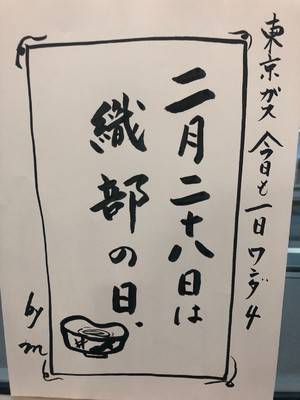 東京ガス 今日も一日ワンダ4
二月二十八日は
織部の日、
by m